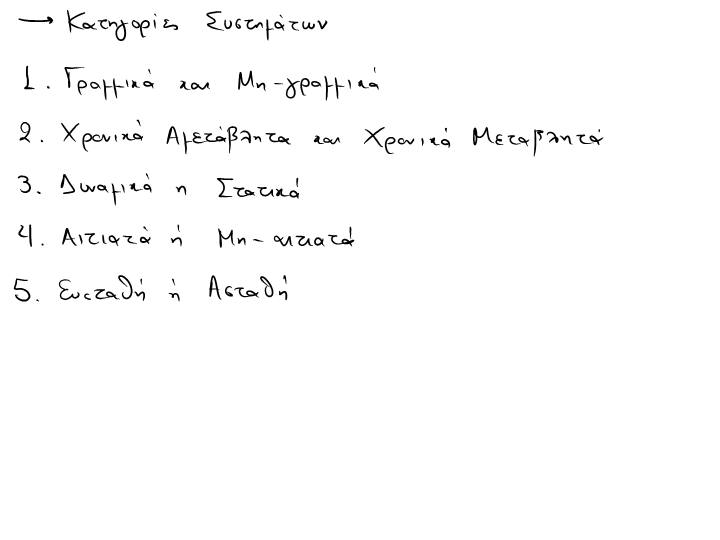 → Κατηγορίες Συστημάτων
1. Γραμμικά και Μη-γραμμικά
2. Χρονικά Αμετάβλητα και Χρονικά Μεταβλητά
3. Δυναμικά η Στατικά
4. Αιτιατά ή Μη-αιτιατά
5. Ευσταθή ή Ασταθή